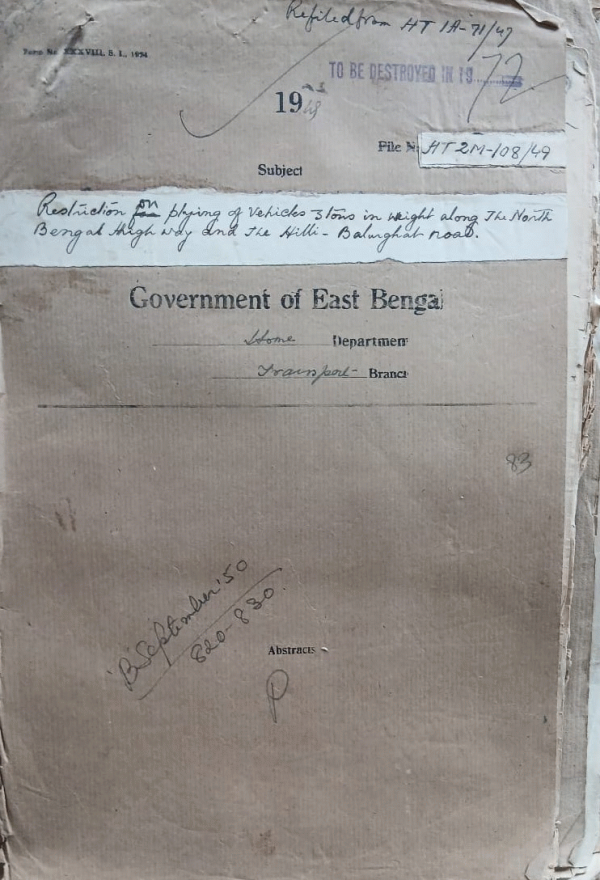 Refiled from HT 1A-71/47
Form No. XXXVIII, B. I., 1934
TO BE DESTROYED IN 19 72
1948
File No HT 2M-108/49
Subject
Restriction on plying of Vehicles 3 tons in weight along The North
Bengal High way and the Hilli - Balurghat road.
Government of East Bengal
Home Department
Transport Branch
83
'B' September '50
820-830
Abstracts
P